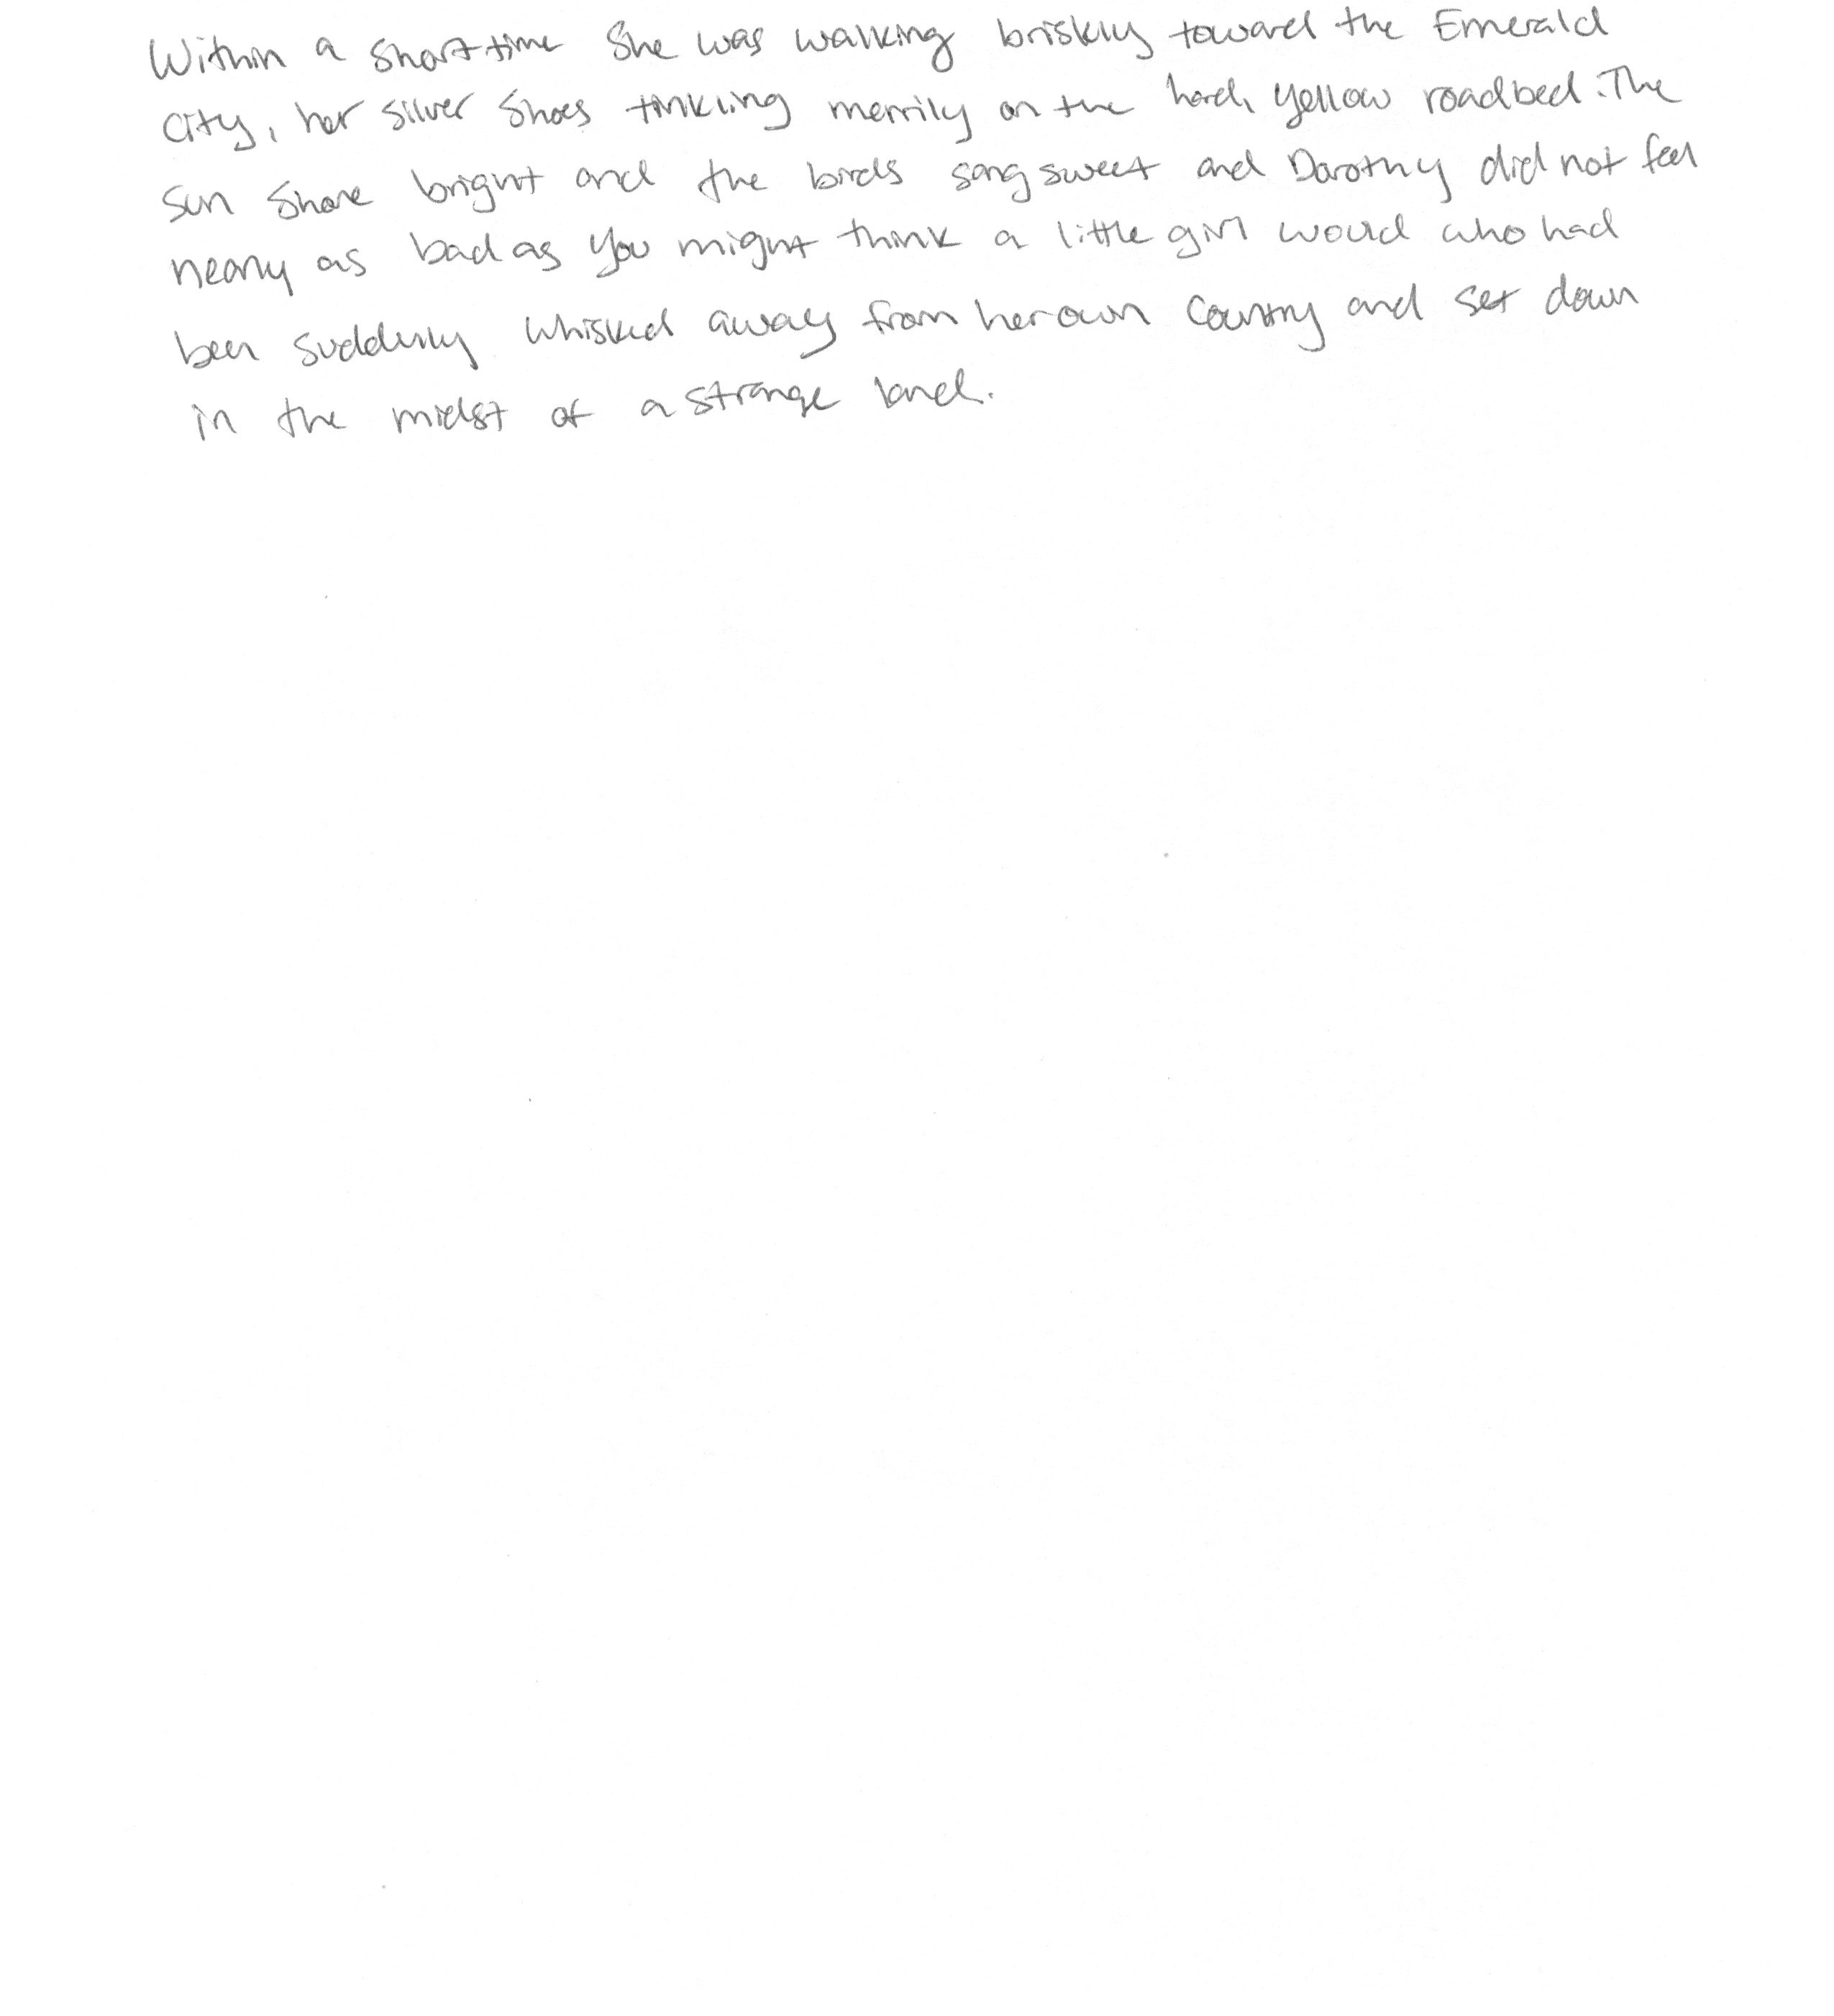 Within a short time she was walking briskly toward the Emerald
City, her silver shoes tinkling merrily on the hard, yellow roadbed. The
sun shone bright and the birds sang sweet and Dorothy did not feel
nearly as bad as you might think a little girl would who had
been suddenly whisked away from her own country and set down
in the midst of a strange land.